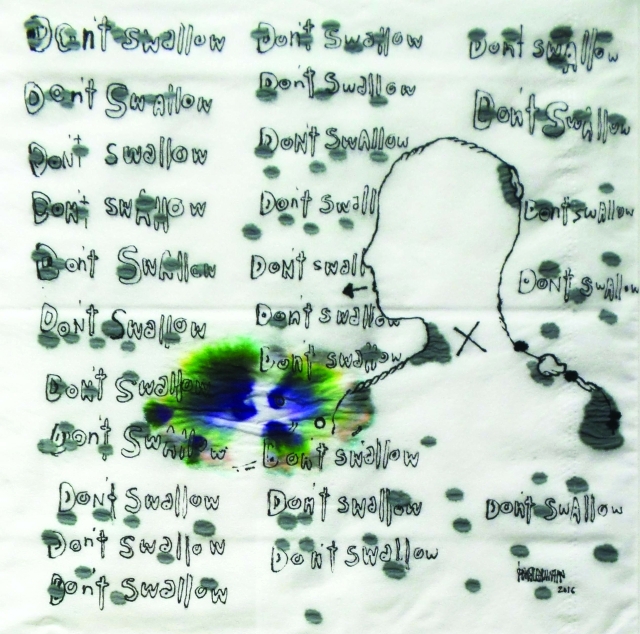 Don't swallow
Don't Swallow
Don't swallow
Don't swAllow
Don't SwAllow
Don't Swallow
Don't Swallow
Don't SwAllow
Don't Swallow
Don't Swallow
Don't Swallow
Don't Swallow
Don't Swallow
DoN't SwAllow
Don't Swall
DoN't swal
Don't swallow
Don't swallow
Don't swallow
Don't swallow
Don't swallow
Don't swAllow
Don't Swallow
Don't swAllow
Don't swallow
X
Don't SwAllow
2016